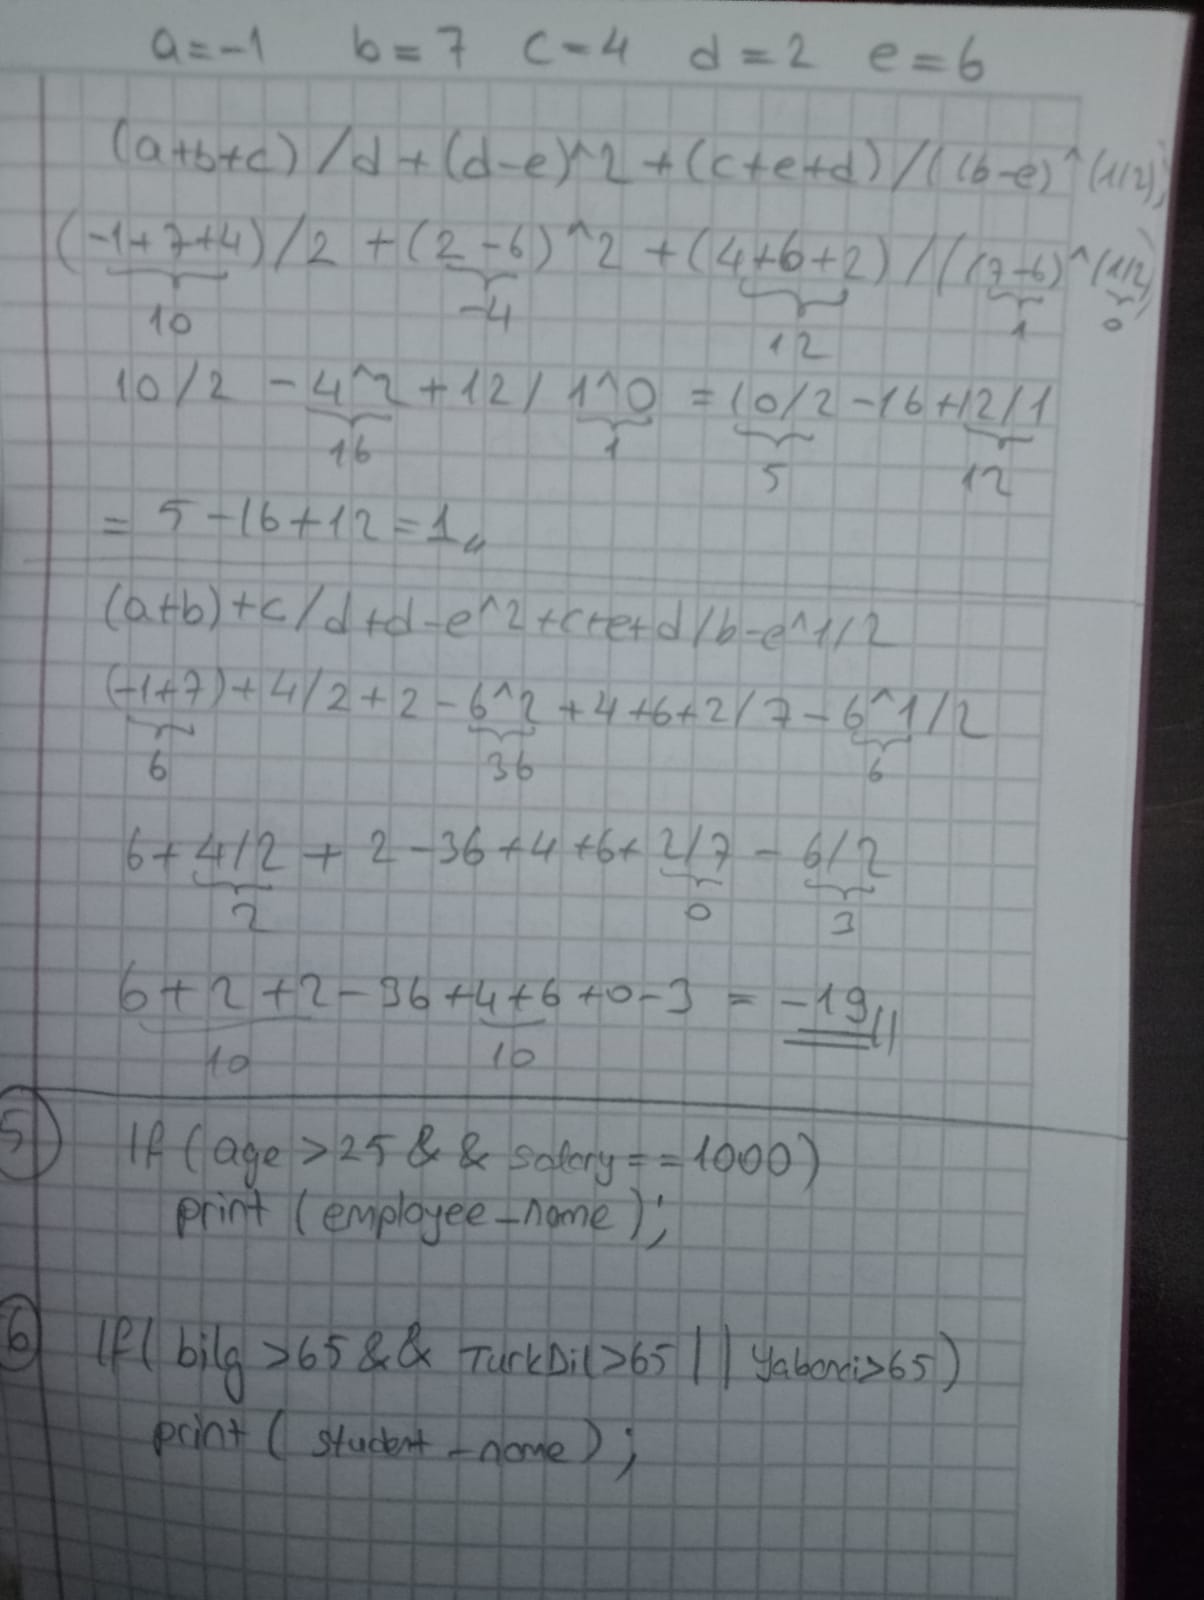 a=-1 b=7 c=4 d=2 e=6
(a+b+c)/d+(d-e)^2+(c+e+d)/((b-e)^(1/2))
(-1+7+4)/2+(2-6)^2+(4+6+2)/((7-6)^(1/2)
10 -4 12 1 0
10/2 -4^2+12/1^0 =10/2-16+12/1
16 1 5 12
= 5-16+12=1
(a+b)+c/d+d-e^2+c+e+d/b-e^1/2
(-1+7)+4/2+2-6^2+4+6+2/7-6^1/2
6 36 6
6+4/2+2-36+4+6+2/7-6/2
2 0 3
6+2+2-36+4+6+0-3 = -19
10 10
5) If (age >25 && salary==1000)
print (employee_name);
6 If( bilg >65 && TurkDil>65 || Yabanci>65)
print ( student_name);